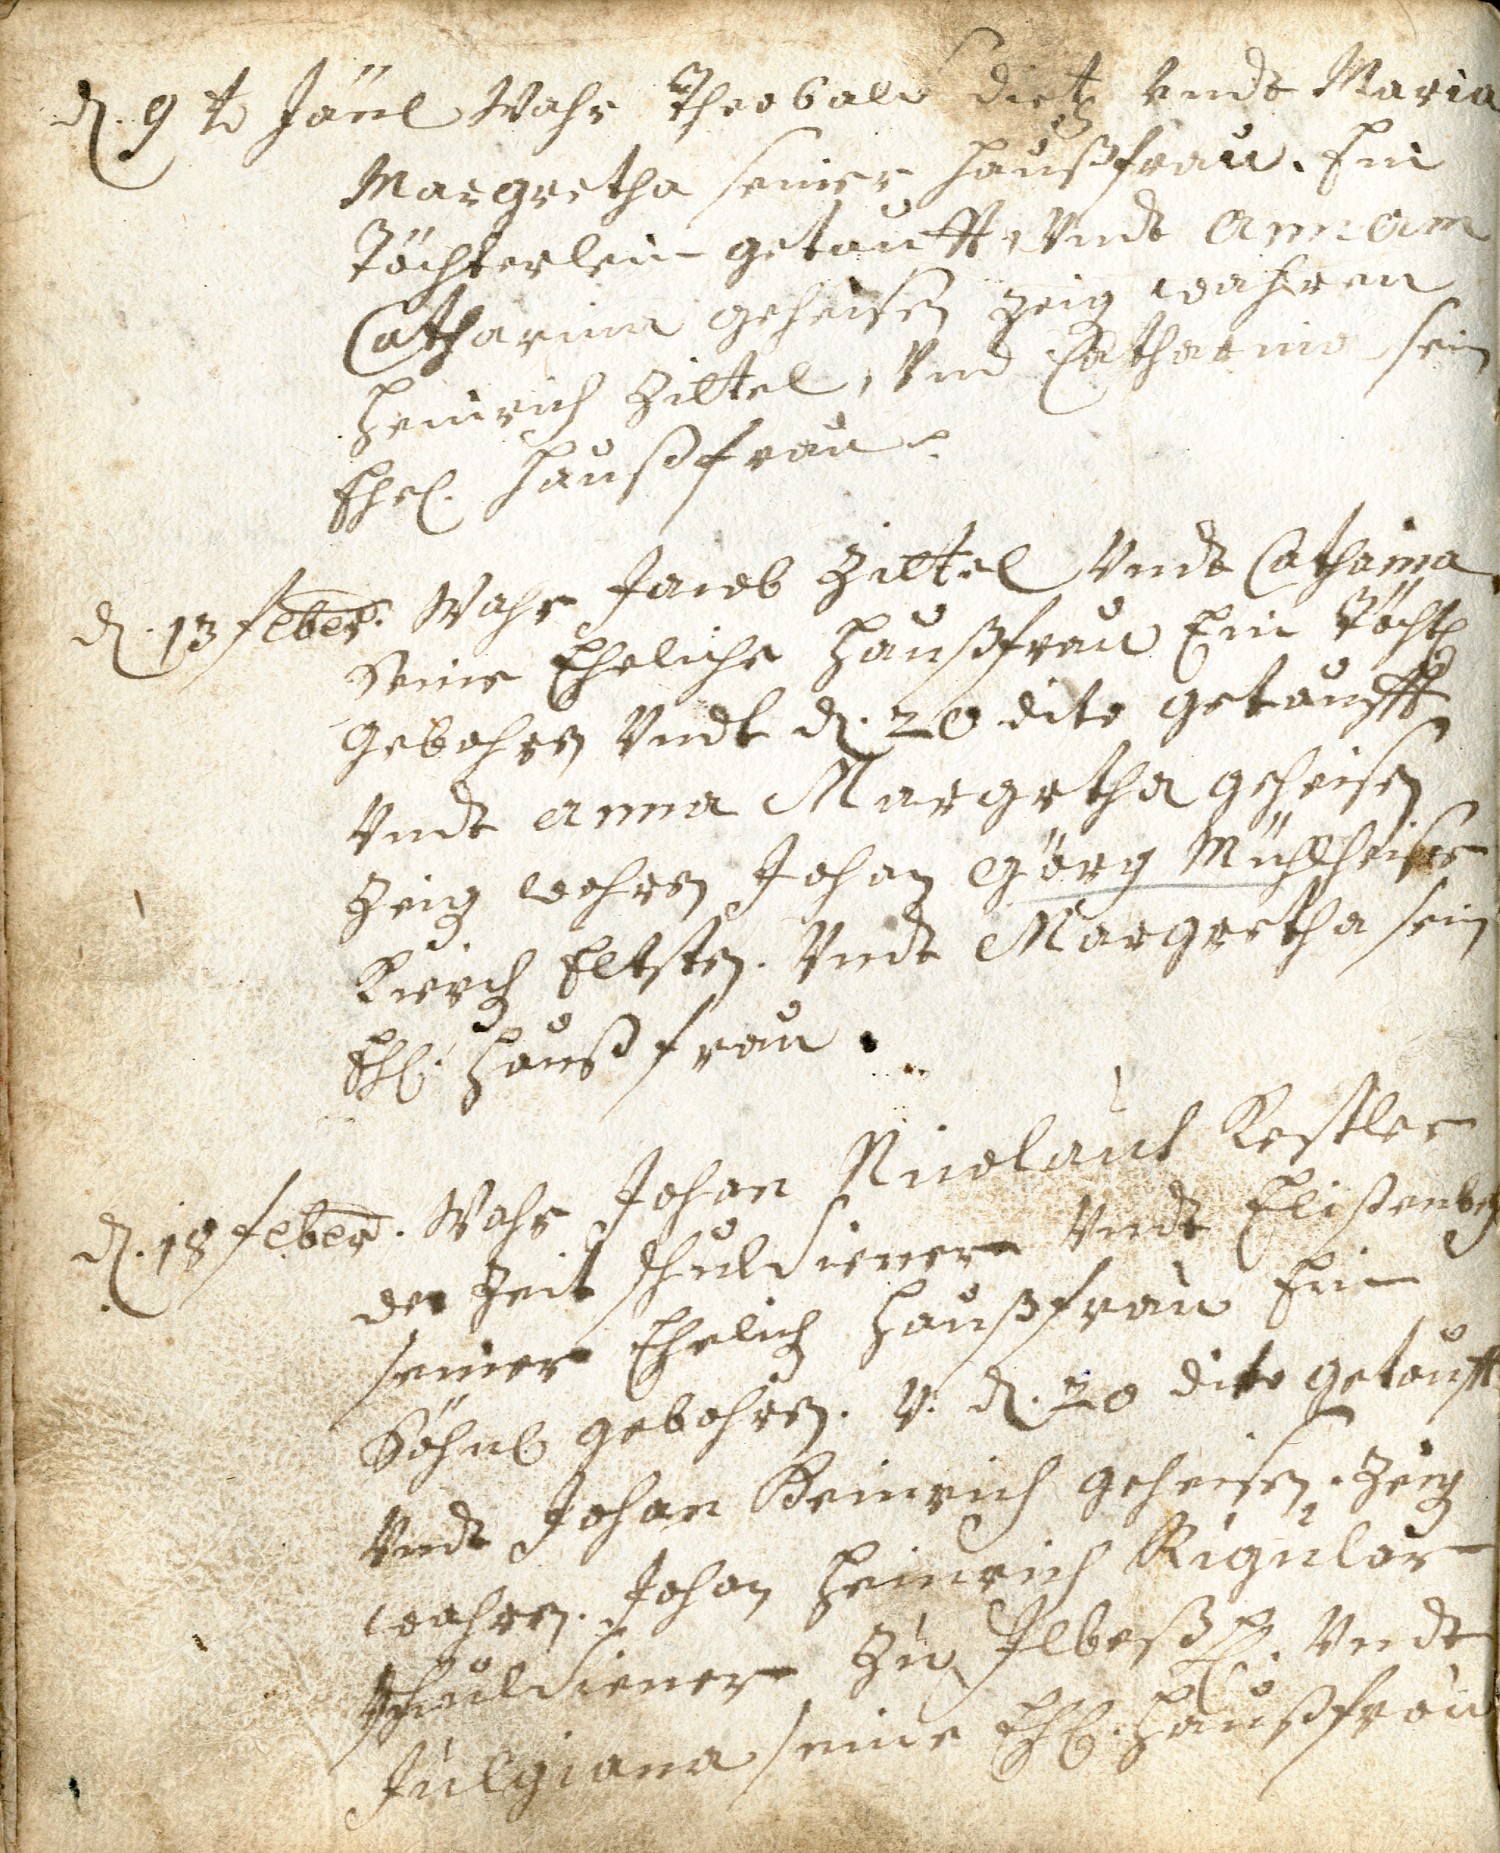 d. 9 t Jänl Wahr Theobald dietz Undt Maria
Margretha seiner haußfrau. Ein
Töchterlein getaufft, Undt annam
Catharina geheisen zeig wahren
Heinrich Zittel, Vnd Catharina sein
Ehel. haußfrau.
d. 13 feber. Wahr Jacob Zittel Undt Catharina
Seine Eheliche haußfrau Ein Töchtl
gebohren Undt d. 20 dito getaufft
Undt anna Margretha geheisen
Zeig wahren Johan Görg Mühlheiser
Kirch Eltsten. Undt Margretha sein
Ehl. haußfrau.
d. 18 feber. Wahr Johan Nicolaus Kestler
der Zeit schuldiener Undt
seiner Ehelich haußfrau Ein
Söhnl gebohren. V. d. 20 dito getaufft
Undt Johan Heinrich geheisen. Zeig
wahren. Johan Heinrich Rigular
schuldiener Zu Undt
Julgiana seine Ehl. haußfrau